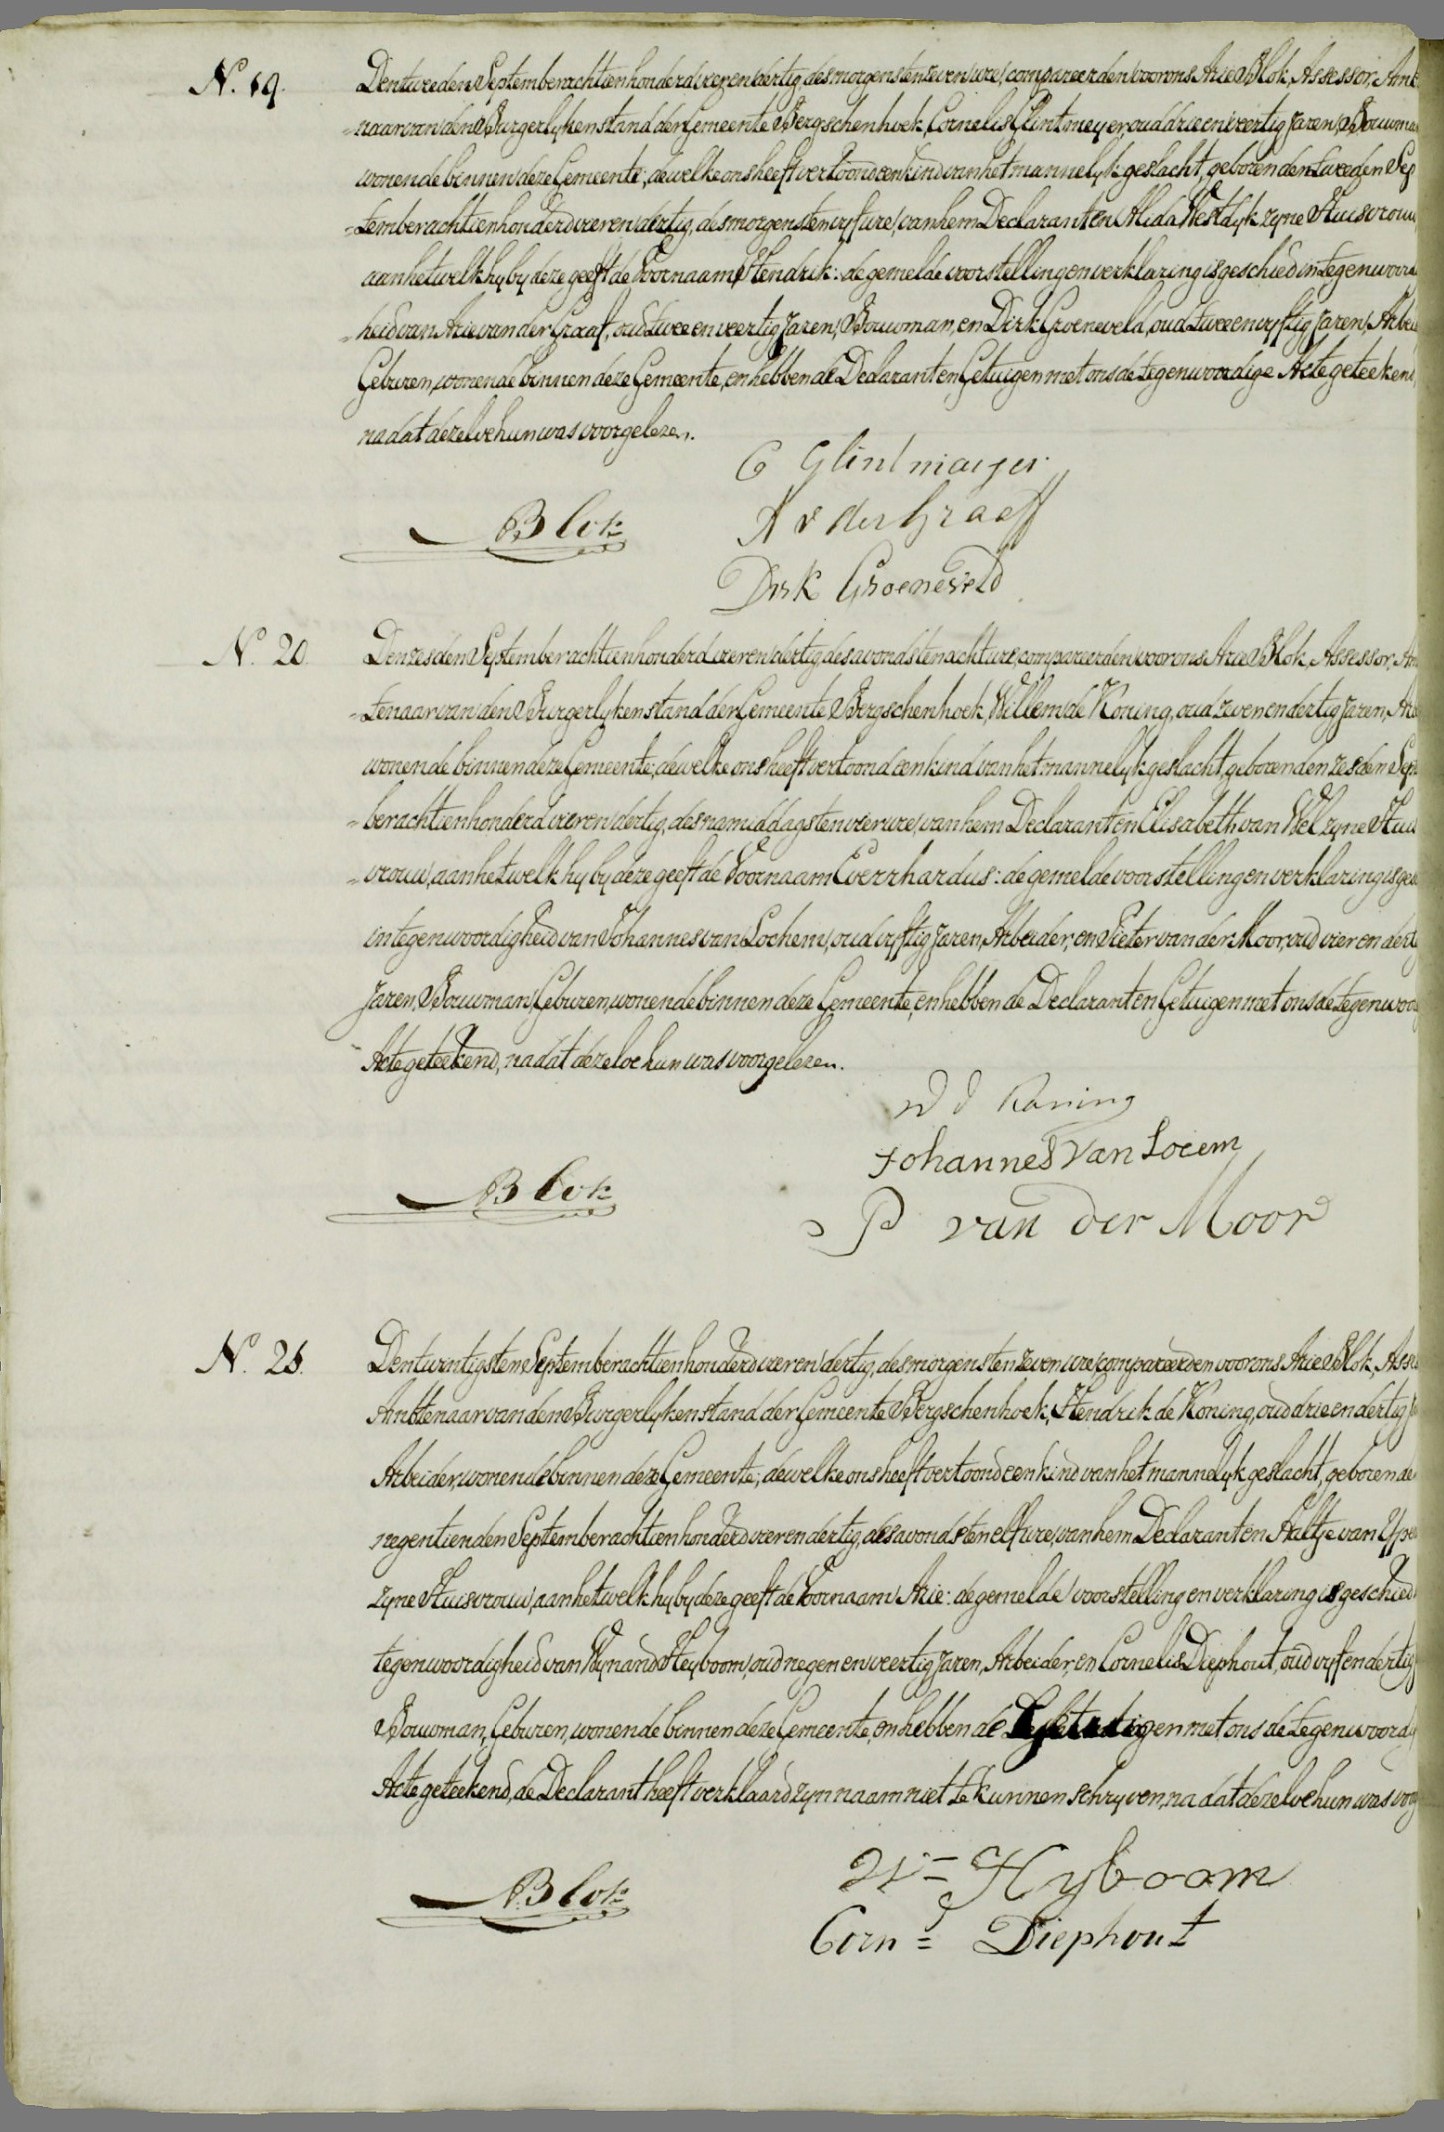 N. 19.
Den tweeden September achttienhonderd vier en dertig, des morgens ten zeven ure, compareerden voor ons Arie Blok, Assessor, Amt
=naar van den Burgerlyken stand der Gemeente Bergschenhoek, Cornelis Glintmeyer, oud drie en veertig Jaren, Bouwma
wonende binnen deze Gemeente; dewelke ons heeft vertoond een kind van het mannelyk geslacht, geboren den tweeden Sep
=tember achttienhonderd vier en dertig, des morgens ten vyf ure, van hem Declarant en Alida Westdyk zyne Huisvrouw
aan hetwelk hy by deze geeft de Voornaam Hendrik: de gemelde voorstelling en verklaring is geschied in tegenwoord
=heid van Arie van der Graaf, oud twee en veertig Jaren, Bouwman, en Dirk Groeneveld, oud twee en vyftig Jaren, Arbei
Geburen, wonende binnen deze Gemeente, en hebben de Declarant en Getuigen met ons de tegenwoordige Akte geteekend,
na dat dezelve hun was voorgelezen.
C Glintmeijer
A v der Graaff
Blok
Dirk Groeneveld
N. 20.
Den zesden September achttienhonderd vier en dertig des avonds ten acht ure, compareerden voor ons Arie Blok, Assessor, Am
=tenaar van den Burgerlyken stand der Gemeente Bergschenhoek, Willem de Koning, oud zeven en dertig Jaren, Arb
wonende binnen deze Gemeente; dewelke ons heeft vertoond een kind van het mannelyk geslacht, geboren den zesden Sept
=ber achttienhonderd vier en dertig, des namiddags ten vier ure, van hem Declarant en Elisabeth van Wel zyne Huis
=vrouw, aan hetwelk hy by deze geeft de Voornaam Everrhardus: de gemelde voorstelling en verklaring is ges
in tegenwoordigheid van Johannes van Lochem, oud vyftig Jaren, Arbeider, en Pieter van der Moor, oud vier en derti
Jaren, Bouwman, Geburen, wonende binnen deze Gemeente, en hebben de Declarant en Getuigen met ons de tegenwoor
Akte geteekend, na dat dezelve hun was voorgelezen.
W d Koning
Johannes van Locem
Blok
P van der Moor
N. 21.
Den twintigsten September achttienhonderd vier en dertig, des morgens ten zeven ure, compareerden voor ons Arie Blok, Asse
Ambtenaar van den Burgerlyken stand der Gemeente Bergschenhoek, Hendrik de Koning, oud drie en dertig Ja
Arbeider, wonende binnen deze Gemeente; dewelke ons heeft vertoond een kind van het mannelyk geslacht, geboren de
negentienden September achttienhonderd vier en dertig, des avonds ten elf ure, van hem Declarant en Aaltje van
zyne Huisvrouw, aan hetwelk hy by deze geeft de Voornaam Arie: de gemelde voorstelling en verklaring is geschied
tegenwoordigheid van Wynand Heyboom, oud negen en veertig Jaren, Arbeider, en Cornelis Diephout, oud vyf en dertig
Bouwman, Geburen, wonende binnen deze Gemeente, en hebben de Getuigen met ons de tegenwoordi
Akte geteekend, de Declarant heeft verklaard zyn naam niet te kunnen schryven, na dat dezelve hun was voor
Wn= Hyboom
Blok
Corn= Diephout